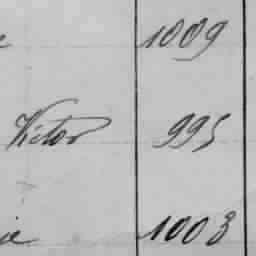 e 1009
Victor 995
ie 1003